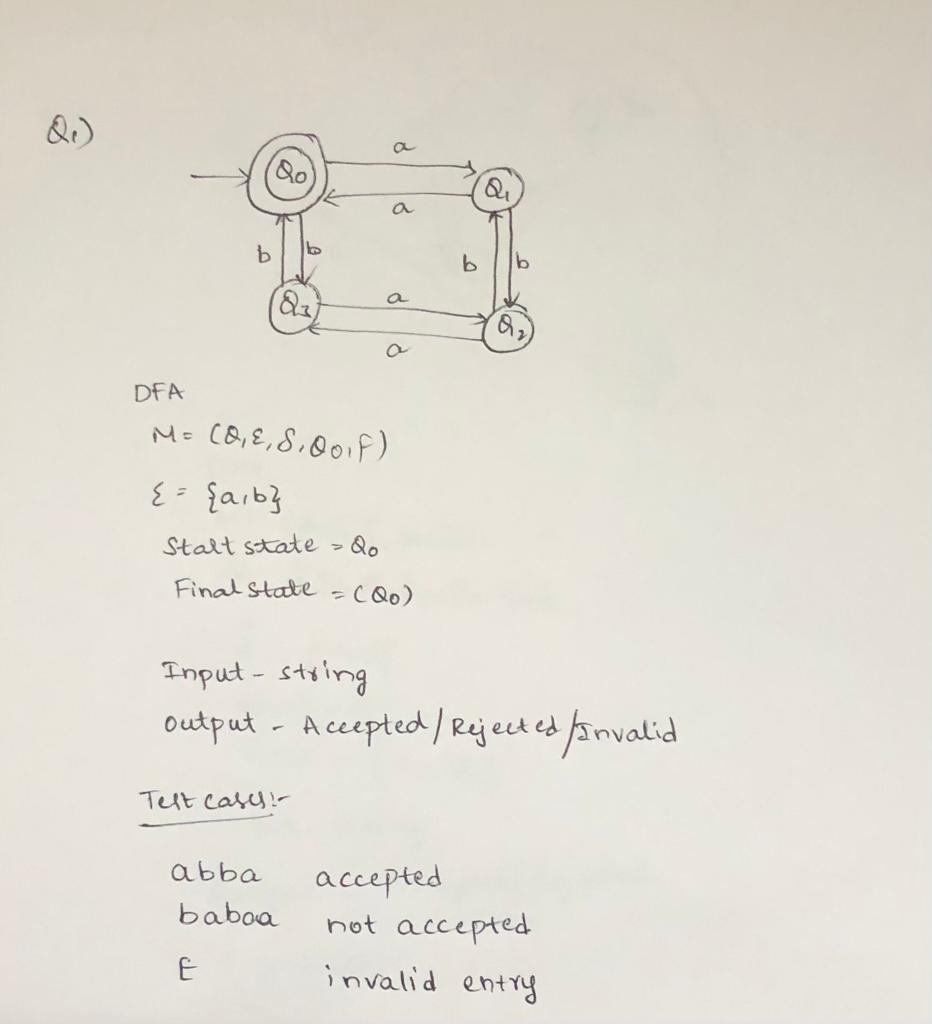 Q1)
a
Q0
Q1
a
b b
b b
Q3
a
Q2
a
DFA
M = (Q, Σ, δ, Q0, F)
Σ = {a, b}
Start state = Q0
Final state = (Q0)
Input - string
output - Accepted/Rejected/Invalid
Test cases:-
abba accepted
babaa not accepted
E invalid entry